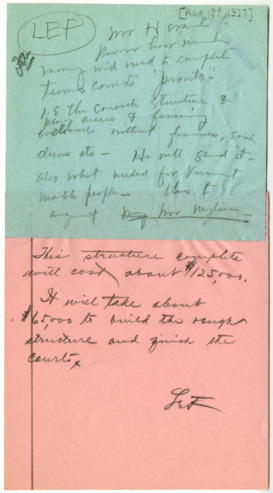 [Aug. 18?, 1927]
LEP
Mr H
know how much
money wid need to complete
tennis courts pronto.
1.E the concrete structure &
play areas & fencing
enclosure without
etc - He will send it.
also what needed for Vermont
marble people - this to
This structure complete
will cost about $125,000.
It will take about
$65,000 to build the rough
structure and finish the
courts,